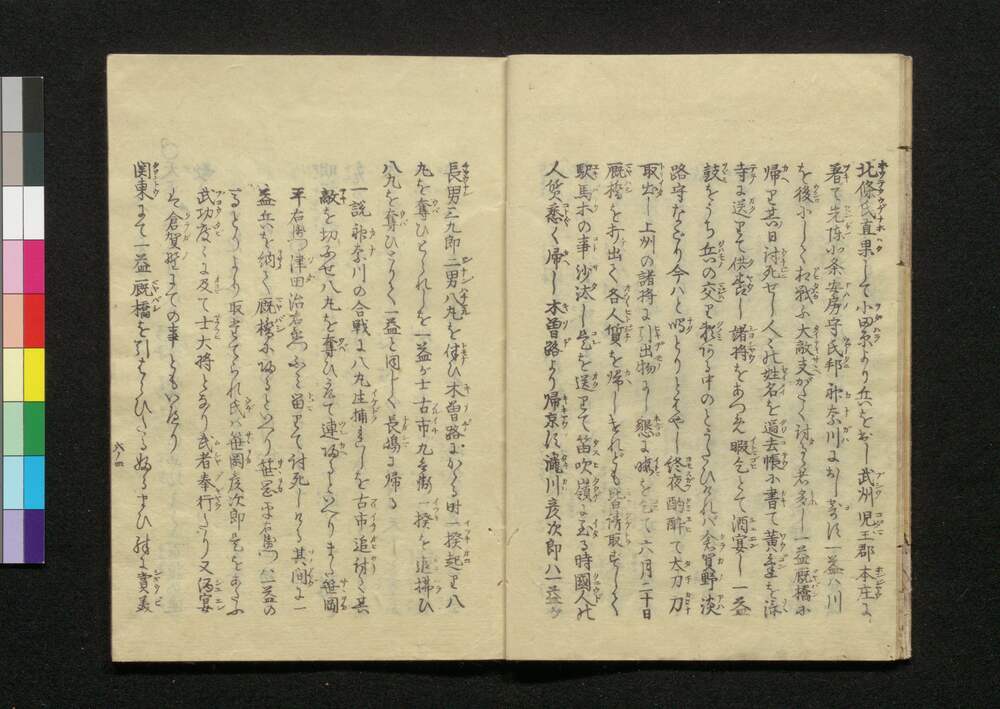 北條氏直果して小田原より兵を出し武州児玉郡本庄に
着て先陣小条安房守氏邦神奈川に出しける一益ハ川
を後にしてお戦ふ大敵支がたく討るゝ者多し一益厩橋に
帰り其日討死せし人々の姓名を過去帳に書て黄金を添
寺に送りて供養し諸将をあつめ暇乞とて酒宴し一益
鼓をうち兵の交り頼ある中のとうたひけれバ倉賀野淡
路守なごり今ハと鳴とりとはやし終夜酌酔て太刀刀
取出し上州の諸将に引出物し懇に暇を乞て六月二十日
厩橋を打出る各人質を帰しけれども皆請取ずして
駅馬等の事沙汰し兵を送りて笛吹嶺に至る時國人の
人質悉く帰し木曽路より帰京す瀧川彦次郎ハ一益が
長男三九郎二男八丸を伴ひ木曽路にかゝる時一揆起り八
丸を奪ひとられしを一益が士古市九兵衛一揆を追拂ひ
八丸を奪ひとりて一益と同しく長嶋に帰る
一説神奈川の合戦に八丸生捕れしを古市追討て其
敵を切ふせ八丸を奪ひ立て連帰るといへりまた笹岡
平右衛門津田治右衛門ふみ留りて討死しける其間に一
益兵を納て厩橋に帰るといへり笹岡平右衛門ハ一益の
取立てられ氏ハ笹岡彦次郎
武功度々に及て士大将となり武者奉行たり又酒宴
も倉賀野にての事ともいへり
関東にて一益厩橋を引はらひたる
六ノ四